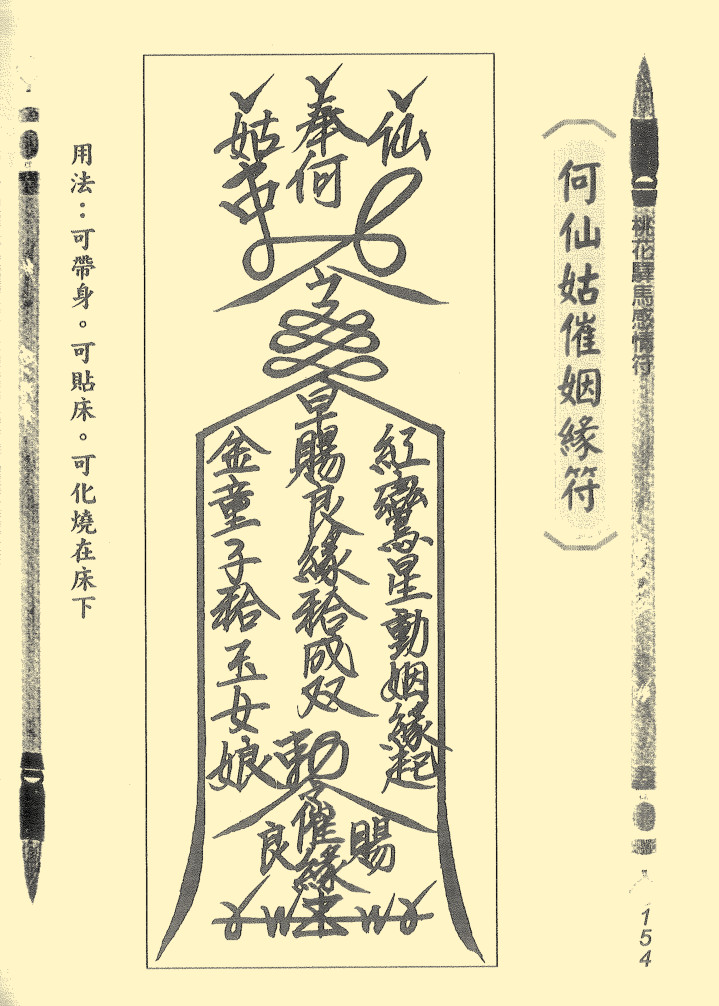 桃花驛馬感情符
154
(何仙姑催姻緣符)
仙
奉何
姑
紅鸞星動姻緣起
早賜良緣袷成双
金童子袷玉女娘
勅
賜
催緣
良
用法：可帶身。可貼床。可化燒在床下